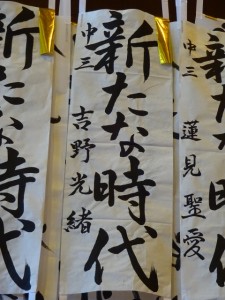 新たな時代
中三
蓮見聖愛
新たな時代
中三
吉野光緒
新たな時代